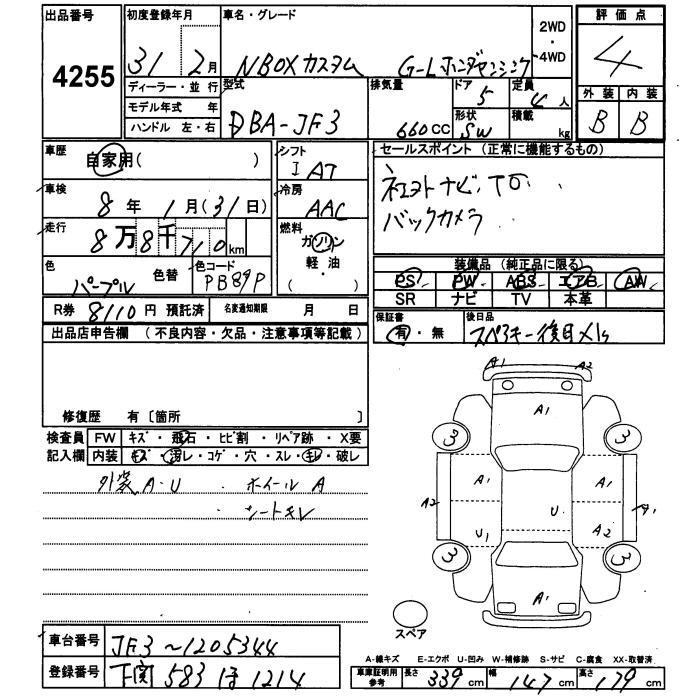 出品番号
4255
初度登録年月
31年 2月
ディーラー・並行
モデル年式 年
ハンドル 左・右
車名・グレード
NBOXカスタム G-Lホンダセンシング
2WD
・
4WD
型式
DBA-JF3
排気量
660cc
ドア
5
定員
4人
形状
SW
積載
kg
評価点
4
外装 内装
B B
車歴
自家用( )
車検
8年 1月(31日)
走行
8万8千710km
色
パープル 色替
色コード
PB89P
シフト
I AT
冷房
AAC
燃料
ガソリン
軽・油
( )
セールスポイント (正常に機能するもの)
バックカメラ
装備品 (純正品に限る)
PS PW ABS エアB AW
SR ナビ TV 本革
R券 8110円 預託済 名変通知期限 月 日
保証書
有・無
後日品
スペアキー後日×1s
出品店申告欄 (不良内容・欠品・注意事項等記載)
修復歴 有〔箇所 〕
検査員 FW キズ・飛石・ヒビ割・リペア跡・X要
記入欄 内装 キズ・汚レ・コゲ・穴・スレ・キレ・破レ
外装 A・U ホイール A
シートキレ
A1 A2
A1
3 3
A1 A1
A2 U A1
U1 A2
3 3
A1
スペア
車台番号 JF3〜1205344
登録番号 下関 583 ほ 1214
A-線キズ E-エクボ U-凹み W-補修跡 S-サビ C-腐食 XX-取替済
車庫証明用
参考
長さ 339cm 幅 147cm 高さ 179cm